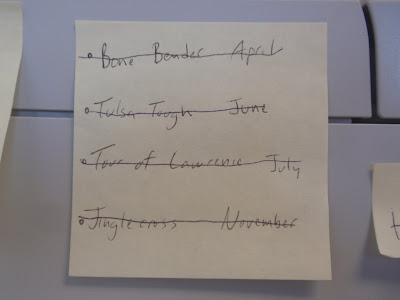 Bone Bender April
Tulsa Tough June
Tour of Lawrence July
Jinglecross November